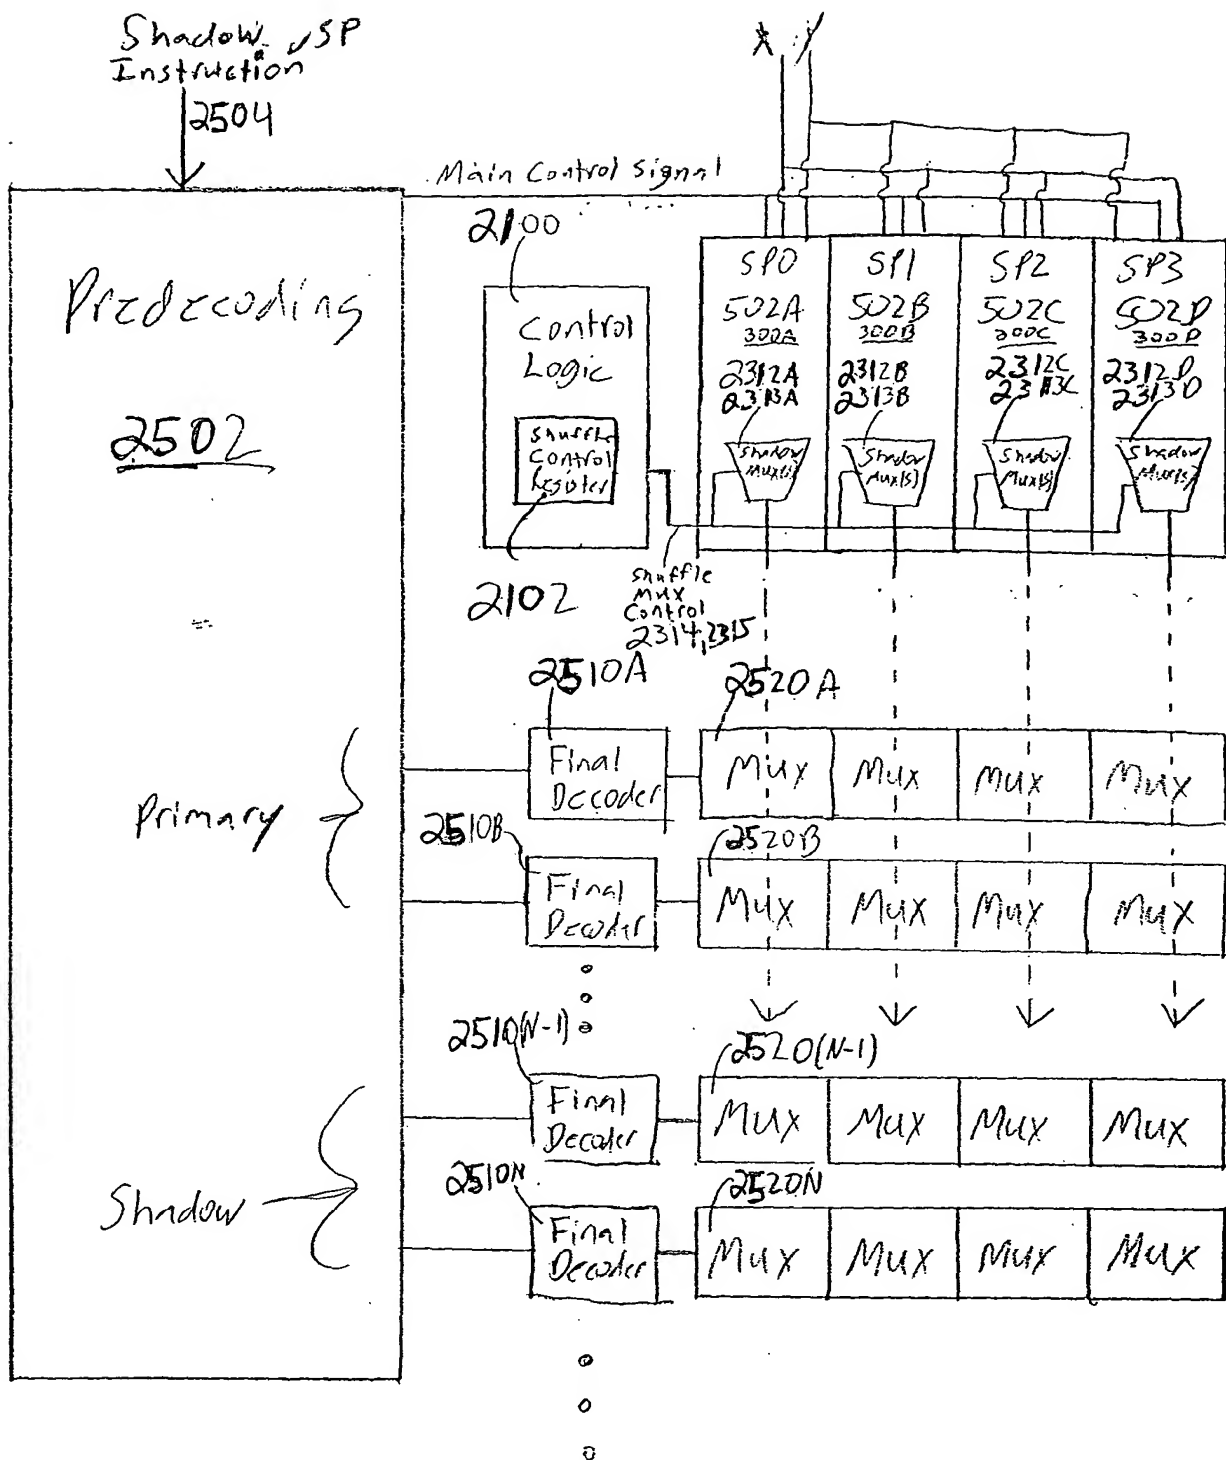 Shadow SP
Instruction
2504
X Y
Main Control Signal
2100
Predecoding
2502
Control
Logic
Shuffle
Control
Register
2102
SP0
502A
300A
2312A
2313A
Shadow
Mux(s)
SP1
502B
300B
2312B
2313B
Shadow
Mux(s)
SP2
502C
300C
2312C
2313C
Shadow
Mux(s)
SP3
502D
300D
2312D
2313D
Shadow
Mux(s)
Shuffle
Mux
Control
2314,2315
2510A
2520A
Final
Decoder
Mux Mux Mux Mux
Primary
2510B
2520B
Final
Decoder
Mux Mux Mux Mux
2510(N-1)
2520(N-1)
Final
Decoder
Mux Mux Mux Mux
Shadow
2510N
2520N
Final
Decoder
Mux Mux Mux Mux